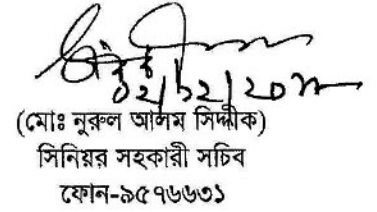 ০২/১২/২০
(মোঃ নুরুল আলম সিদ্দীক)
সিনিয়র সহকারী সচিব
ফোন-৯৫৭৬৬৩১